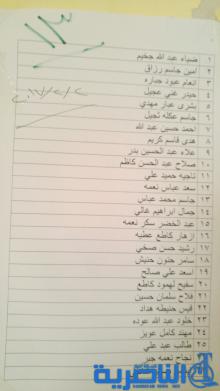 ١ ضياء عبد الله جحيم
٢ امين جاسم رزاق
٣ انعام عبود جباره
٤ حيدر غني عجيل
٥ بشرى عبار مهدي
٦ جاسم عكله نجيل
٧ احمد حسين عبد الله
٨ هدى قاسم كريم
٩ علاء عبد الحسين بدر
١٠ صلاح عبد الحسن كاظم
١١ ناجيه حميد علي
١٢ سعد عباس نعمه
١٣ جاسم محمد عباس
١٤ جمال ابراهيم غالي
١٥ عبد الخضر سكر نعمه
١٦ ازهار كاطع عطيه
١٧ رشيد حسن صخي
١٨ سامر حنون حنيش
١٩ اسعد علي صالح
٢٠ سفيح لهمود كاطع
٢١ فلاح سلمان حسين
٢٢ قيس حنيطه هداد
٢٣ خلود عبد الله عوده
٢٤ مهند كامل عويز
٢٥ طالب عبد علي
نجاح نعمه جبر
الناصرية